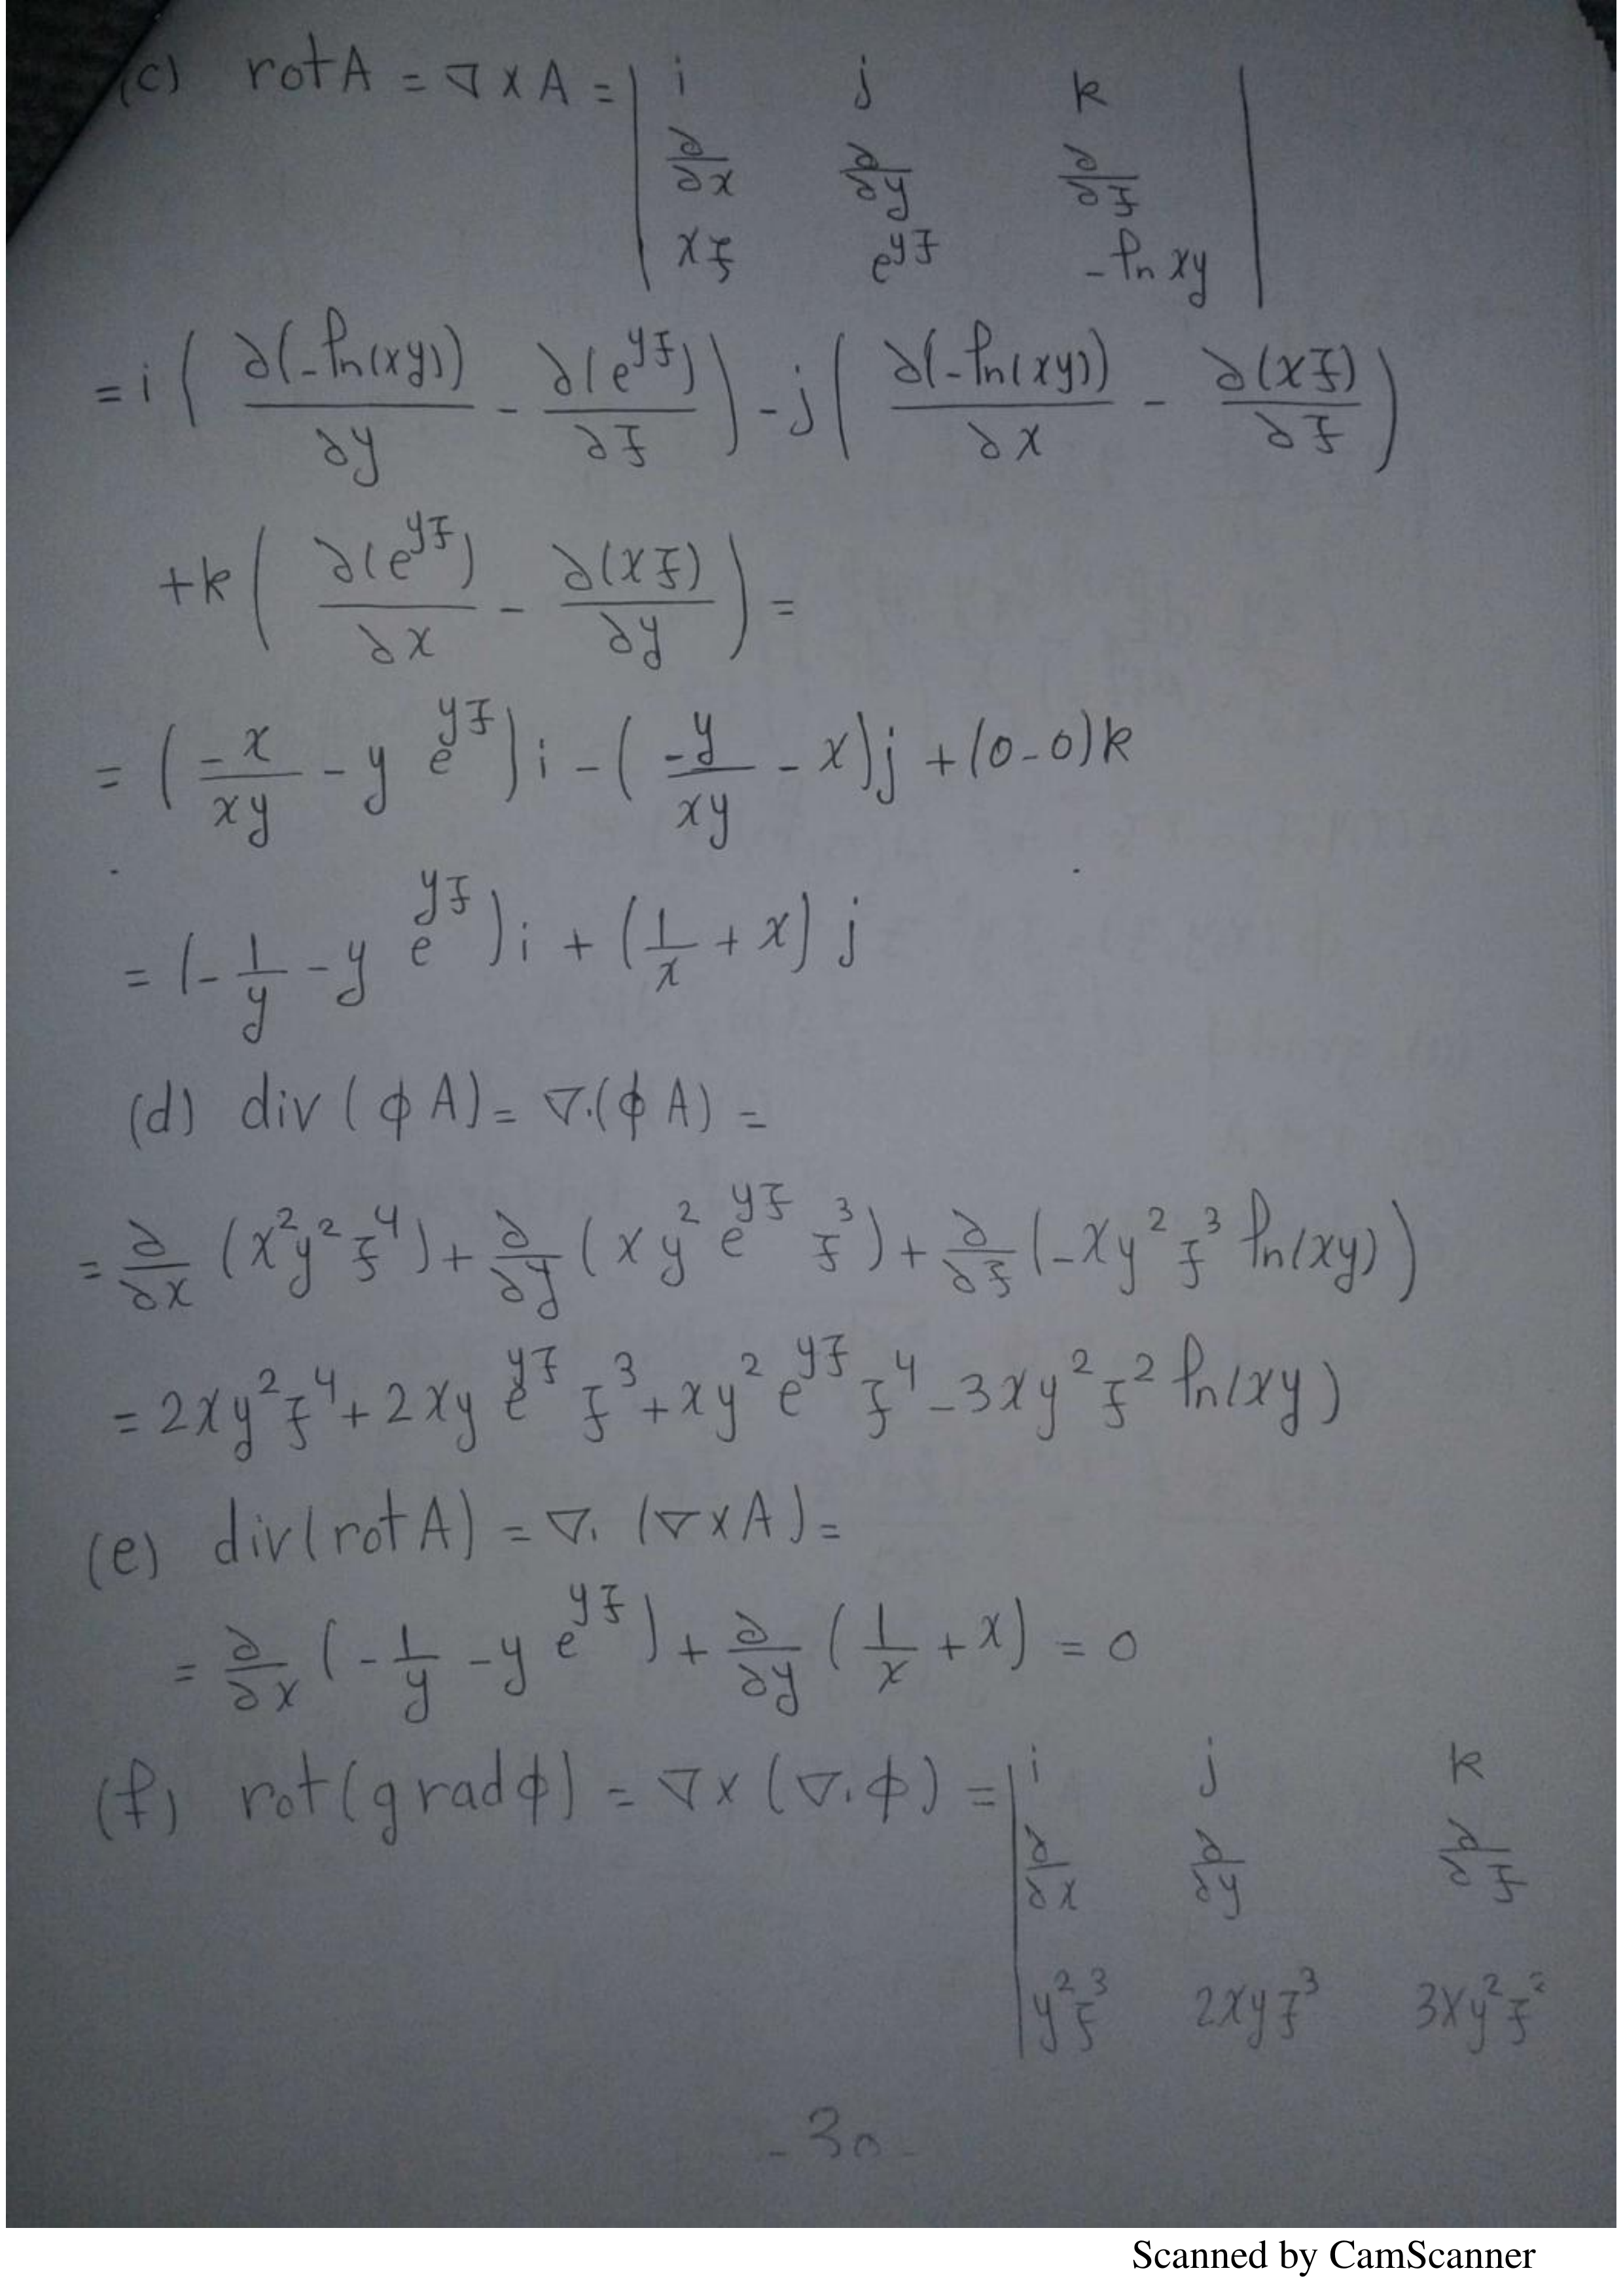 (c) rot A = ∇ × A = | i j k |
∂/∂x ∂/∂y ∂/∂z
xz e^{yz} -ln xy
= i ( ∂(-ln(xy))/∂y - ∂(e^{yz})/∂z ) - j ( ∂(-ln(xy))/∂x - ∂(xz)/∂z )
+ k ( ∂(e^{yz})/∂x - ∂(xz)/∂y ) =
= ( -x/xy - y e^{yz} ) i - ( -y/xy - x ) j + (0-0) k
= ( -1/y - y e^{yz} ) i + ( 1/x + x ) j
(d) div ( φ A ) = ∇.( φ A ) =
= ∂/∂x (x²y²z⁴) + ∂/∂y (x y² e^{yz} z³) + ∂/∂z (-xy² z³ ln(xy))
= 2xy²z⁴ + 2xy e^{yz} z³ + xy² e^{yz} z⁴ - 3xy² z² ln(xy)
(e) div(rot A) = ∇. (∇ × A) =
= ∂/∂x ( -1/y - y e^{yz} ) + ∂/∂y ( 1/x + x ) = 0
(f) rot(grad φ) = ∇ × (∇.φ) = | i j k
∂/∂x ∂/∂y ∂/∂z
y²z³ 2xyz³ 3xy²z²
- 30 -
Scanned by CamScanner